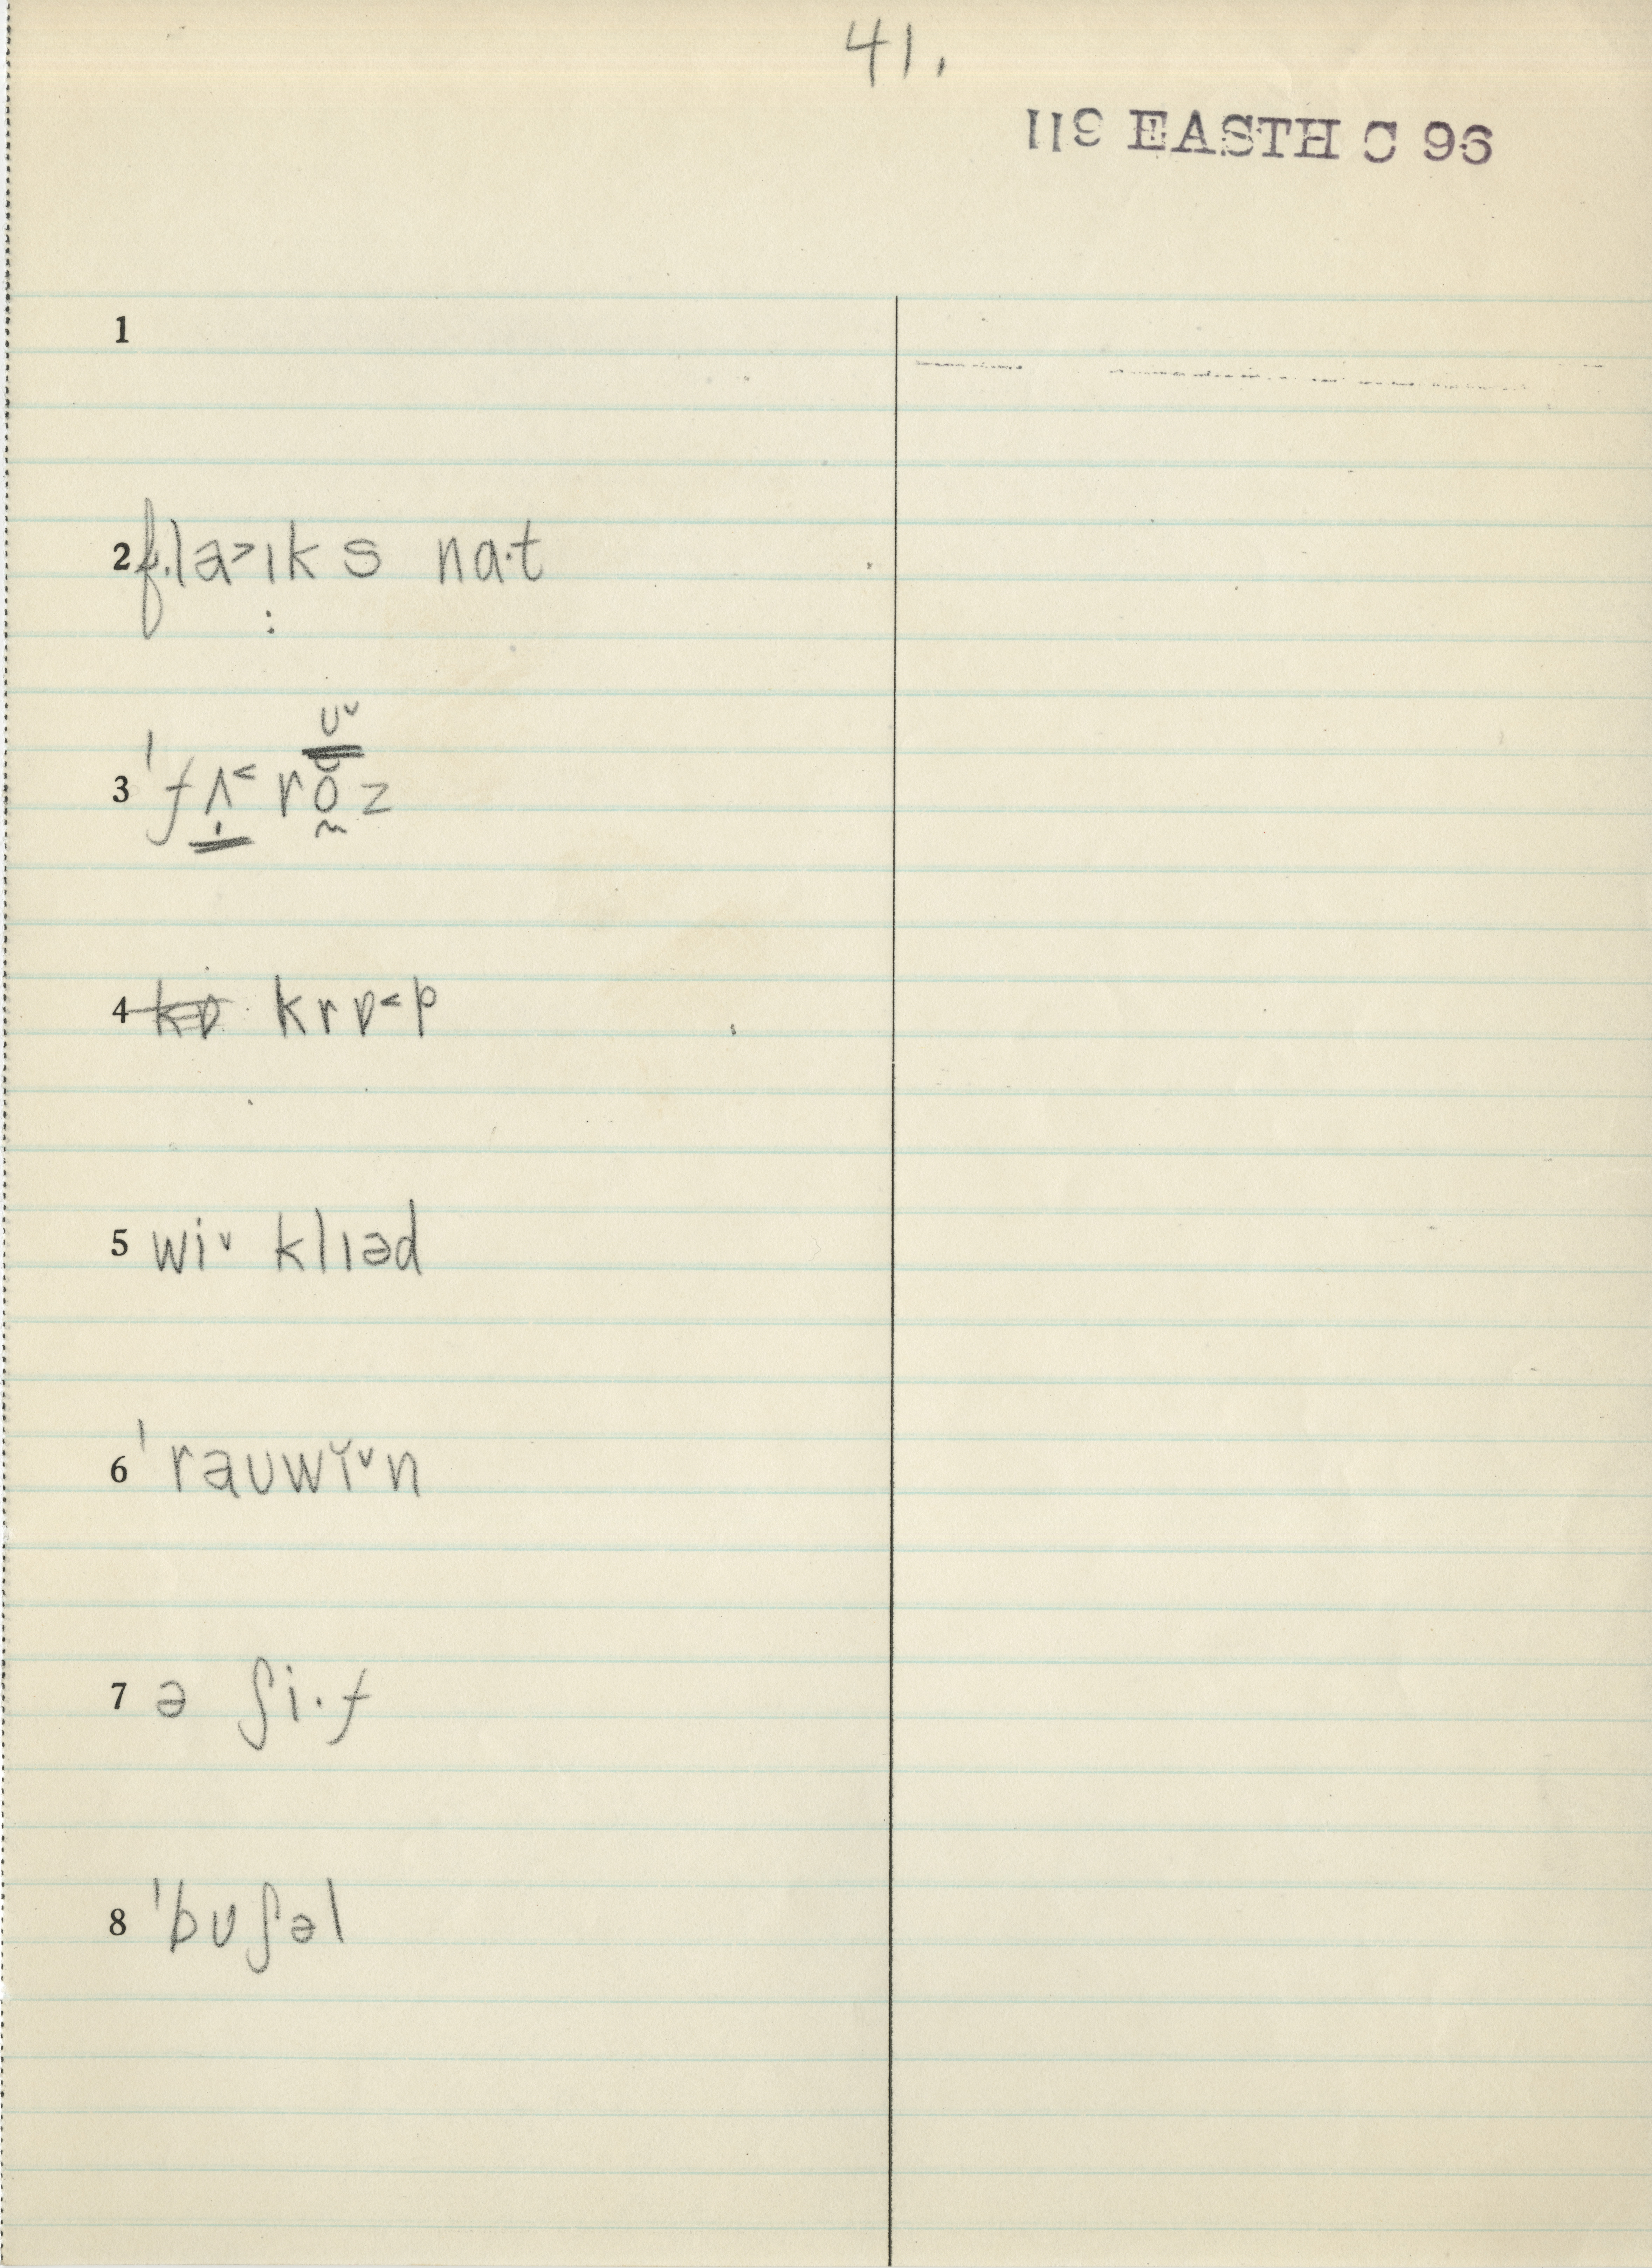 41.
119 EASTH C 96
1
2 fla˃ɪks na·t
3 ˈfʌ˂rŏz ᴜ˅
4 kɒ krɒ˂p
5 wi˅ klɪəd
6 ˈraʊwĭ˅n
7 ə ʃi·f
8 ˈbʊʃəl